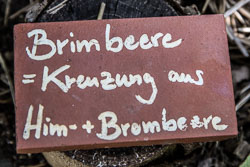 Brimbeere
= Kreuzung aus
Him- + Brombeere